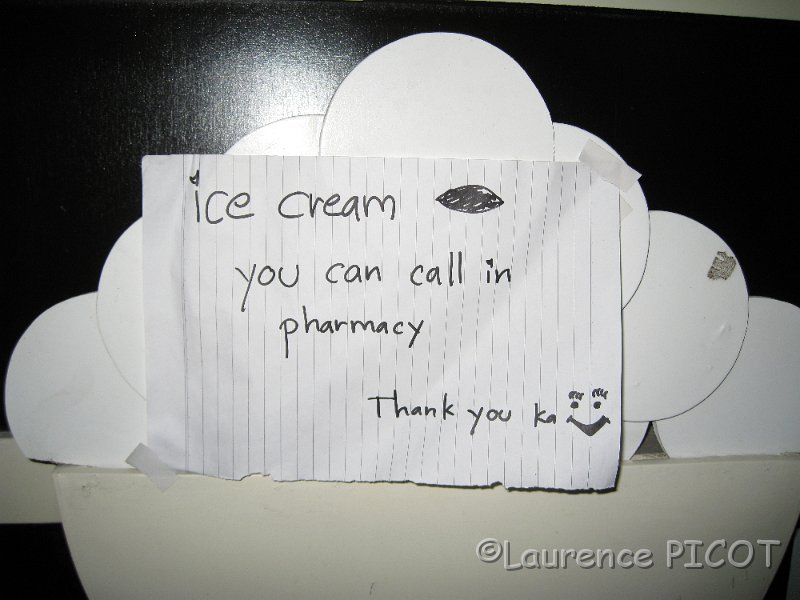 ice cream
you can call in
pharmacy
Thank you ka
©Laurence PICOT